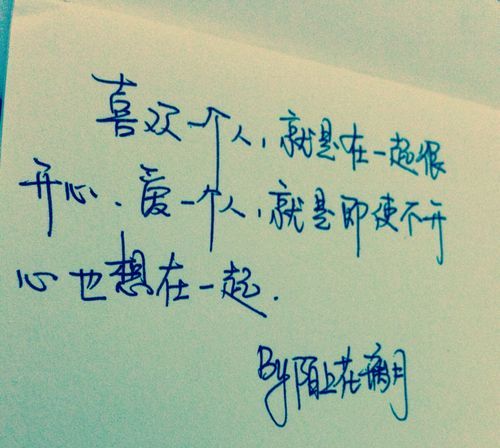 喜欢一个人,就是在一起很
开心、爱一个人,就是即使不开
心也想在一起.
By陌上花满月